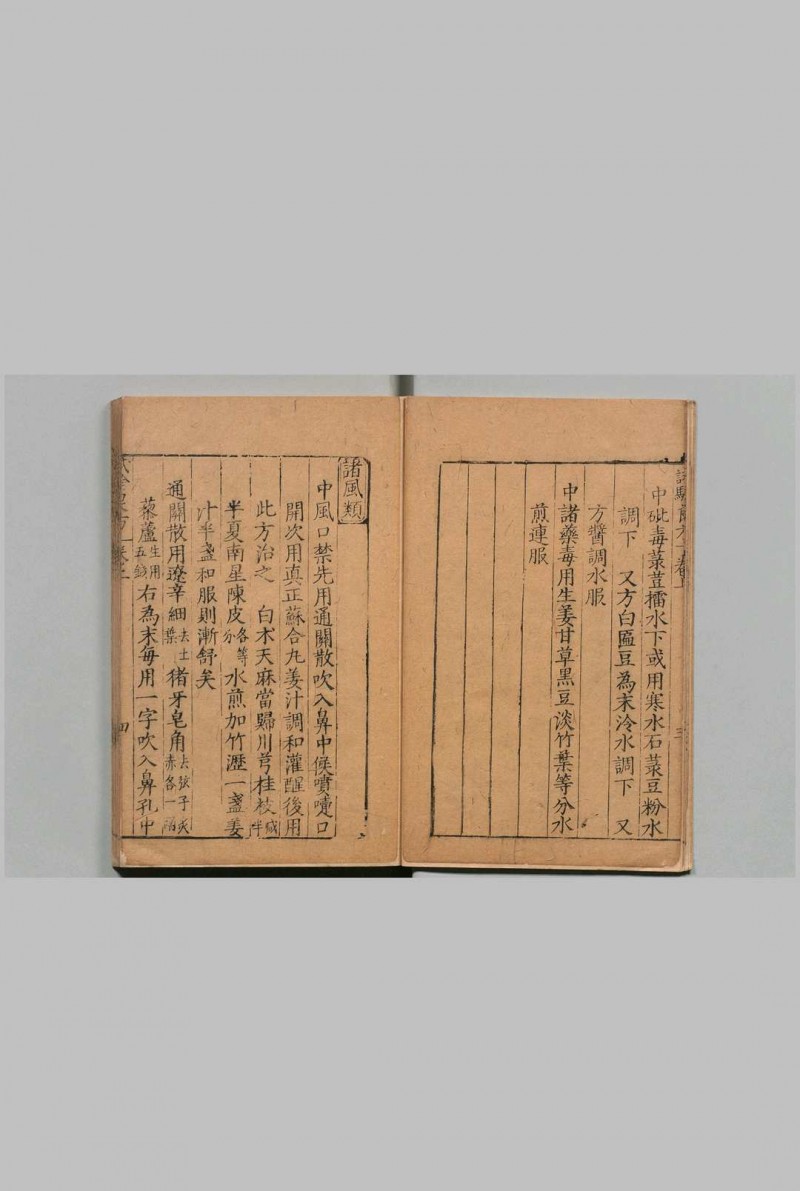 中砒毒菉荳擂水下或用寒水石菉豆粉水
調下　又方白匾豆為末冷水調下　又
方醬調水服
中諸藥毒用生姜甘草黑豆淡竹葉等分水
煎連服
諸風類
中風口禁先用通關散吹入鼻中候噴嚏口
開次用真正蘇合丸姜汁調和灌醒後用
此方治之　白朮天麻當歸川芎桂枝減半
半夏南星陳皮各等分水煎加竹瀝一盞姜
汁半盞和服則漸舒矣
通關散用遼辛細去土葉猪牙皂角去弦子炙赤各一
藜蘆生用五錢右為末每用一字吹入鼻孔中
四